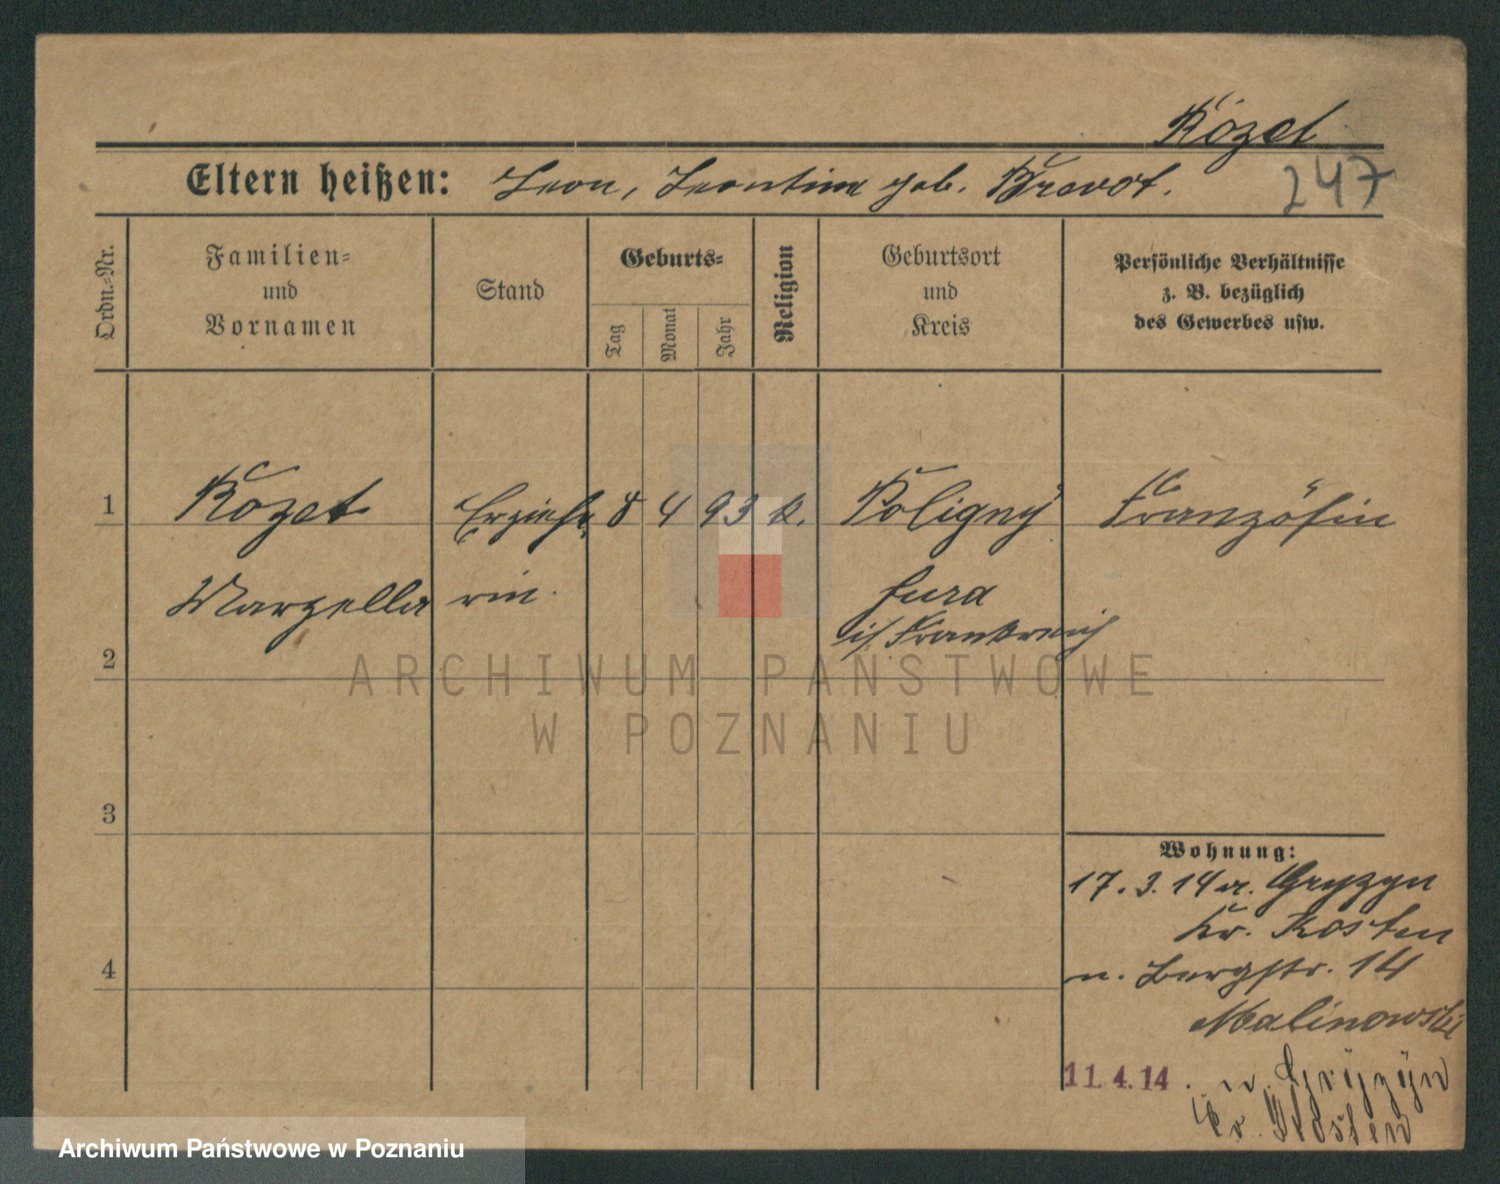 Rozet
Eltern heißen: Leon, Leontine geb. Prevot.
247
Ordn.-Nr.
Familien-
und
Vornamen
Stand
Geburts-
Tag
Monat
Jahr
Religion
Geburtsort
und
Kreis
Persönliche Verhältnisse
z. B. bezüglich
des Gewerbes usw.
1 Rozet Erziehe 8 4 93 k. Poligny Französin
Marzella rin. Jura
i/ Frankreich
2
3
4
Wohnung:
17.3.14 a. Gryzyn
Kr. Kosten
n. Bergstr. 14
Malinowski
11.4.14. n. Gryzyn
Kr. Kosten
ARCHIWUM PAŃSTWOWE
W POZNANIU
Archiwum Państwowe w Poznaniu